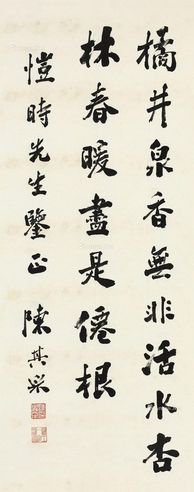 橘井泉香無非活水杏
林春暖盡是僊根
愷時先生鑒正 陳其采